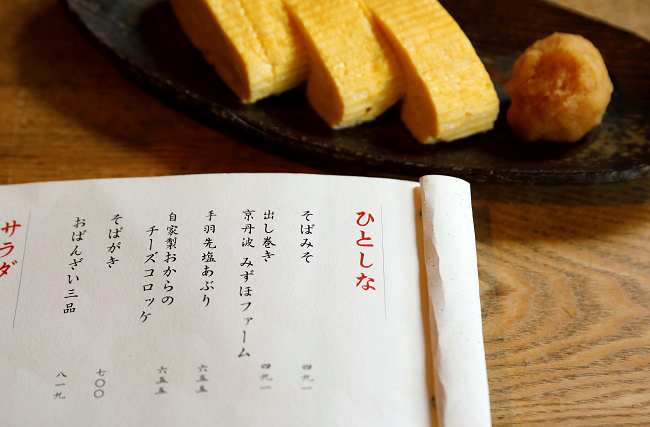 ひとしな
そばみそ
四九一
出し巻き
京丹波 みずほファーム
四九一
手羽先塩あぶり
六五五
自家製おからの
チーズコロッケ
六五五
そばがき
七〇〇
おばんざい三品
八一九
サラダ